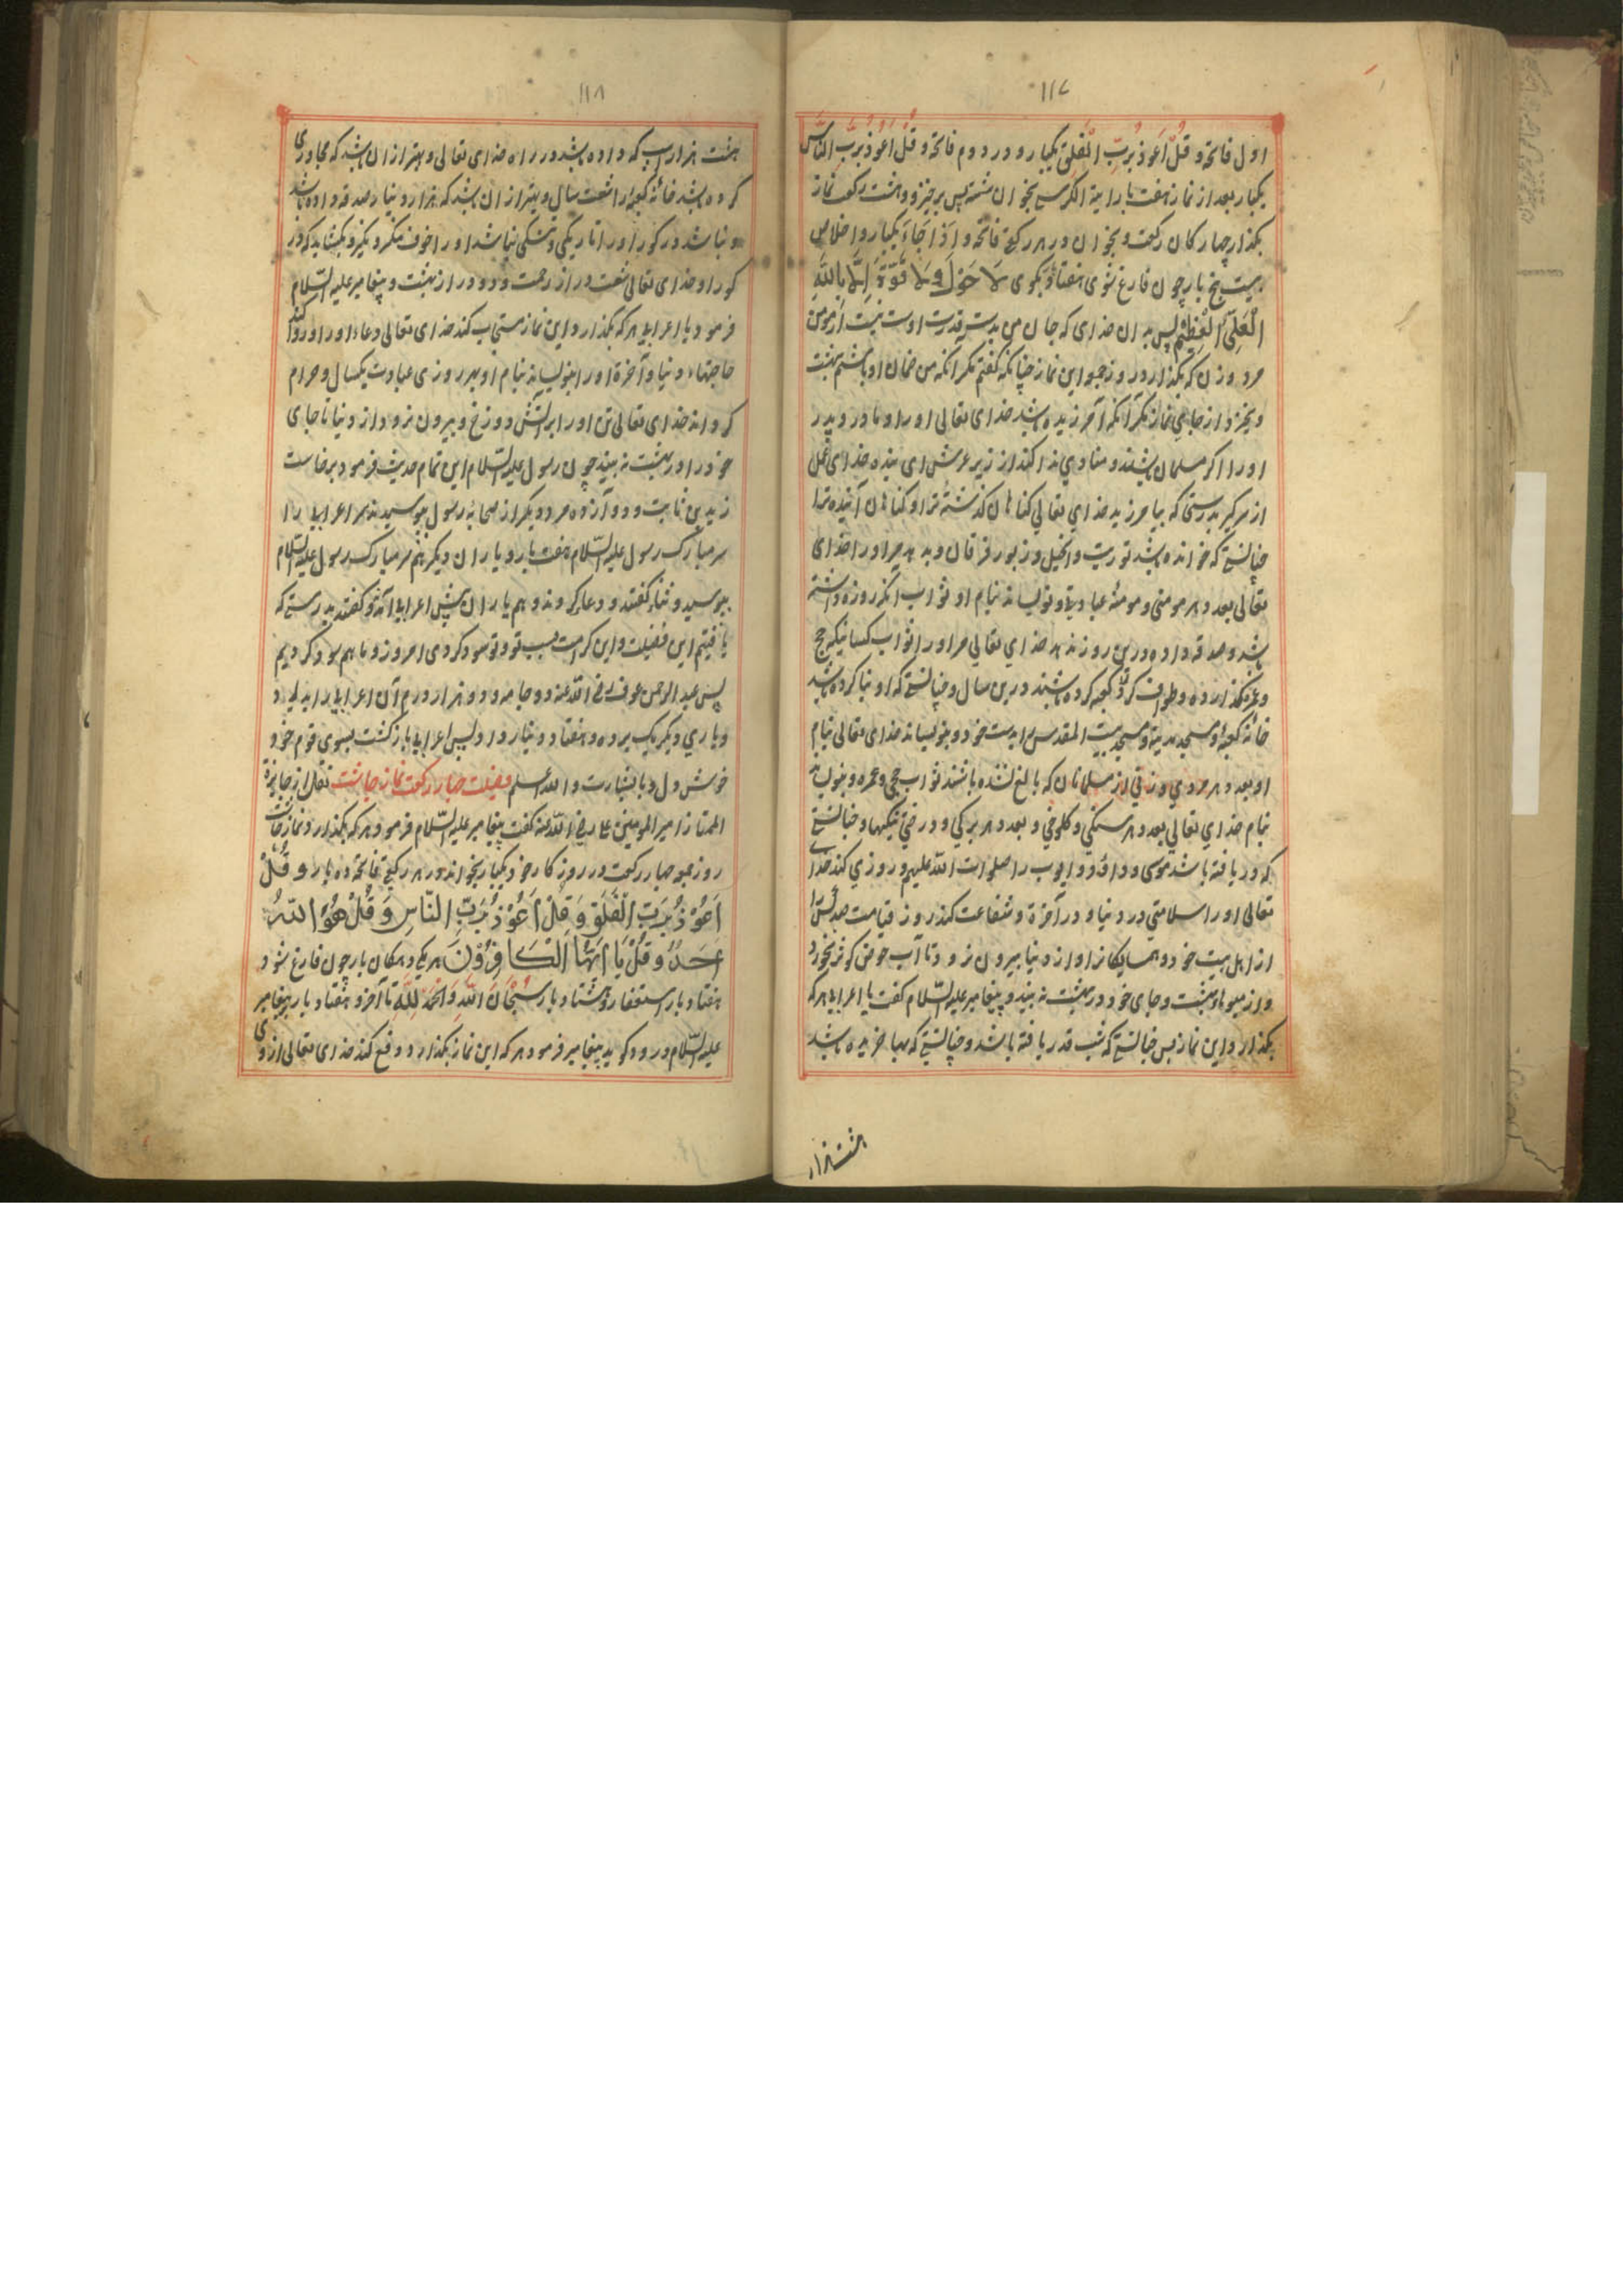 ۱۱۷
اول فاتحة و قُلْ اَعُوْذُ بِرَبِّ الْفَلَقِ یکبار و در دوم فاتحة و قُلْ اَعُوْذُ بِرَبِّ النَّاسِ
یکبار بعد از نماز هفت بار ایة الکرسی بخوان نشسته پس برخیز و هشت رکعت نماز
بکذار چهارکان رکعت و بخوان در هر رکعتی فاتحه و اِذَا جَاءَ یکبار و اخلاص
بیست پنج بار چون فارغ شوی هفتاد بکوی لَا حَوْلَ وَ لَا قُوَّةَ اِلَّا بِاللّٰهِ
الْعَلِیِّ الْعَظِیْمِ پس به ان خدای که جان من بدست قدرت اوست نیست از مومن
مرد و زن که بکذارد روز جمعه این نماز چنانکه کفتم مکر آنکه من ضمان او باشم بهشت
و نخیزد از جای نماز مکر آنکه آمرزیده باشد خدای تعالی او را و مادر و پدر
او را اکر مسلمان باشند و منادی ندا کند از زیر عرش ای بنده خدای عمل
از سر کیر بدرستی که بیامرزید خدای تعالی کناهان کذشته ترا و کناهان آینده ترا
چنانستی که خوانده باشد توریت و انجیل و زبور و فرقان و بدهد مر او را خدای
تعالی بعدد هر مومنی و مومنهٔ عبادتی و نویساند بنام او ثواب انکه روزه داشته
باشد و صدقه داده درین روز بدهد خدای تعالی مر او را ثواب کسانیکه حج
و عمره کذارده و طواف کرد کعبه کرده باشند درین سال و چنانستی که او بنا کرده باشد
خانهٔ کعبه و مسجد مدینة و مسجد بیت المقدس را بدست خود و بنویساند خدای تعالی بنام
او بعدد هر مردی و زنی از مسلمانان که بالغ شده باشند ثواب حجی و عمره و بنویساند
بنام خدای تعالی بعدد هر سنکی و کلوخی و بعدد هر برکی و درختی نیکیها و چنانستی
که دریافته باشد موسی و داؤد و ایوب را صلوات الله علیهم و روزی کند خدا
تعالی او را سلامتی در دنیا و در آخرة و شفاعت کند روز قیامت صد کس را
از اهل بیت خود و همسایکان او از دنیا بیرون نرود تا آب حوض کوثر نخورد
و از میوهاء بهشت و جای خود در بهشت نبیند و پیغامبر علیه السّلام کفت یا اعرابی هر که
بکذارد این نماز پس چنانستی که شب قدر یافته باشد و چنانستی که بهبا خریده باشد
هشت هزار
۱۱۸
هشت هزار اسپ که داده باشد در راه خدای تعالی و بهتر از ان باشد که مجاوری
کرده باشد خانهٔ کعبه را شصت سال و بهتر از ان باشد که هزار دینار صدقه داده باشد
و نباشد در کور او را تاریکی و تشنکی نباشد او را خوف منکر و نکیر و بکشاید که در
کور او خدای تعالی شصت در از رحمت و دو در از بهشت و پیغامبر علیه السّلام
فرمود یا اعرابی هر که بکذارد این نماز مستجاب کند خدای تعالی دعاء او را و روا کند
حاجتهاء دنیا و آخرة او را بنویساند بنام او بهر روزی عبادت یکسال و حرام
کرداند خدای تعالی تن او را بر آتش دوزخ و بیرون نرود از دنیا تا جای
خود را در بهشت نه بیند چون رسول علیه السّلام این تمام حدیث فرمود برخاست
زید بن ثابت و دوازده مرد دیکر از صحابه رسول ببوسیدند سر اعرابی را
سر مبارک رسول علیه السّلام هفت بار و یاران دیکر نیز سر مبارک رسول علیه السّلام
ببوسیدند و ثناء کفتند و دعا کردند و هم یاران پیش اعرابی آمدند و کفتند بدرستی که
یافتیم این فضیلت و این کرامت بسبب تو و تو سود کردی امروز و ما هم سود کردیم
پس عبد الرحمن عوف رضی الله عنه دو جامه و دو هزار درم آن اعرابی را بداد
و یاری دیکر یک برده و هفتاد دینار داد پس اعرابی بازکشت بسوی قوم خود
خوش دل و با بشارت و الله اعلم فضیلت چهار رکعت نماز چاشت نقل از جایزة
الممتاز امیر المومنین علی رضی الله عنه کفت پیغامبر علیه السّلام فرمود هر که بکذارد نماز چاشت
روز جمعه چهار رکعت در روزکار خود یکبار بخواند در هر رکعتی فاتحه ده بار و قُلْ
اَعُوْذُ بِرَبِّ الْفَلَقِ وَ قُلْ اَعُوْذُ بِرَبِّ النَّاسِ وَ قُلْ هُوَ اللّٰهُ
اَحَدٌ وَ قُلْ یَا اَیُّهَا الْکَافِرُوْنَ هر یکی دهکان بار چون فارغ شود
هفتاد بار استغفار و هشتاد بار سُبْحَانَ اللّٰهِ وَ الْحَمْدُ لِلّٰهِ تا آخر و هفتاد بار پیغامبر
علیه السّلام درود کوید پیغامبر فرمود هر که این نماز بکذارد دفع کند خدای تعالی از وی